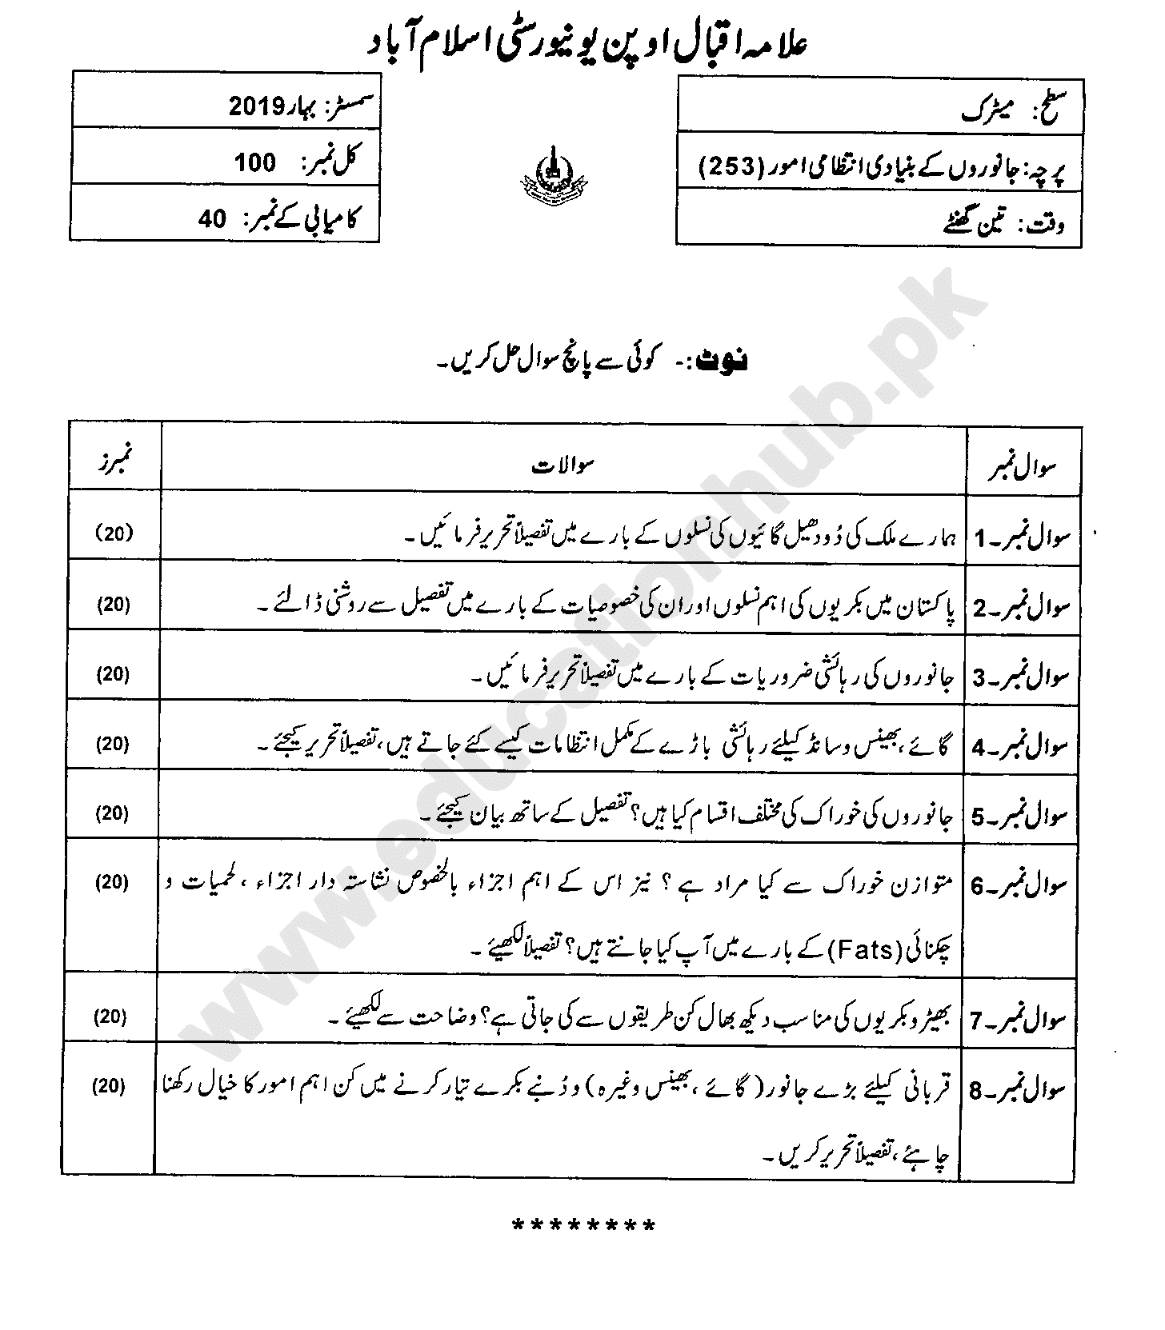 علامہ اقبال اوپن یونیورسٹی اسلام آباد
سطح: میٹرک
پرچہ: جانوروں کے بنیادی انتظامی امور (253)
وقت: تین گھنٹے
سمسٹر: بہار 2019
کل نمبر: 100
کامیابی کے نمبر: 40
نوٹ:- کوئی سے پانچ سوال حل کریں۔
سوال نمبر سوالات نمبرز
سوال نمبر۔1 ہمارے ملک کی دُودھیل گائیوں کی نسلوں کے بارے میں تفصیلاً تحریر فرمائیں۔ (20)
سوال نمبر۔2 پاکستان میں بکریوں کی اہم نسلوں اور ان کی خصوصیات کے بارے میں تفصیل سے روشنی ڈالئے۔ (20)
سوال نمبر۔3 جانوروں کی رہائشی ضروریات کے بارے میں تفصیلاً تحریر فرمائیں۔ (20)
سوال نمبر۔4 گائے، بھینس و سانڈ کیلئے رہائشی باڑے کے مکمل انتظامات کیسے کئے جاتے ہیں، تفصیلاً تحریر کیجئے۔ (20)
سوال نمبر۔5 جانوروں کی خوراک کی مختلف اقسام کیا ہیں؟ تفصیل کے ساتھ بیان کیجئے۔ (20)
سوال نمبر۔6 متوازن خوراک سے کیا مراد ہے؟ نیز اس کے اہم اجزاء بالخصوص نشاستہ دار اجزاء، لحمیات و (20)
چکنائی (Fats) کے بارے میں آپ کیا جانتے ہیں؟ تفصیلاً لکھیئے۔
سوال نمبر۔7 بھیڑ و بکریوں کی مناسب دیکھ بھال کن طریقوں سے کی جاتی ہے؟ وضاحت سے لکھیئے۔ (20)
سوال نمبر۔8 قربانی کیلئے بڑے جانور (گائے، بھینس وغیرہ) و دُنبے بکرے تیار کرنے میں کن اہم امور کا خیال رکھنا (20)
چاہئے، تفصیلاً تحریر کریں۔
********
www.educationhub.pk